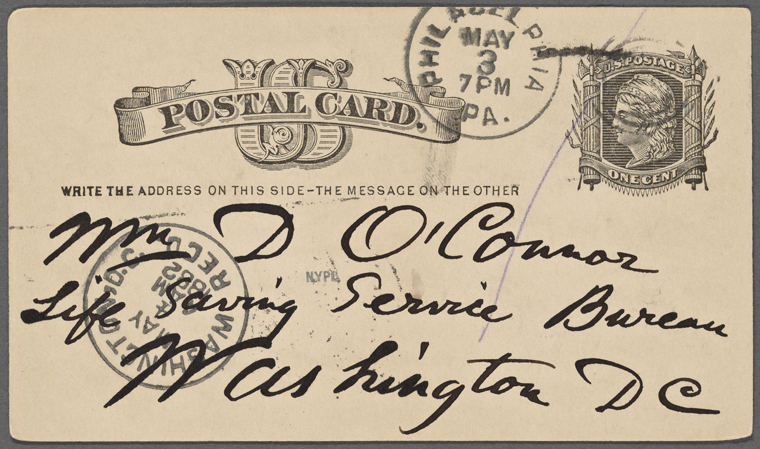 PHILADELPHIA
MAY
3
7PM
PA.
U.S. POSTAGE
US
POSTAL CARD.
ONE CENT
WRITE THE ADDRESS ON THIS SIDE–THE MESSAGE ON THE OTHER
Wm D O'Connor
NYPL
Life Saving Service Bureau
Washington DC
WASHINGTON, D.C.
MAY
4
AM
1882
REC'D